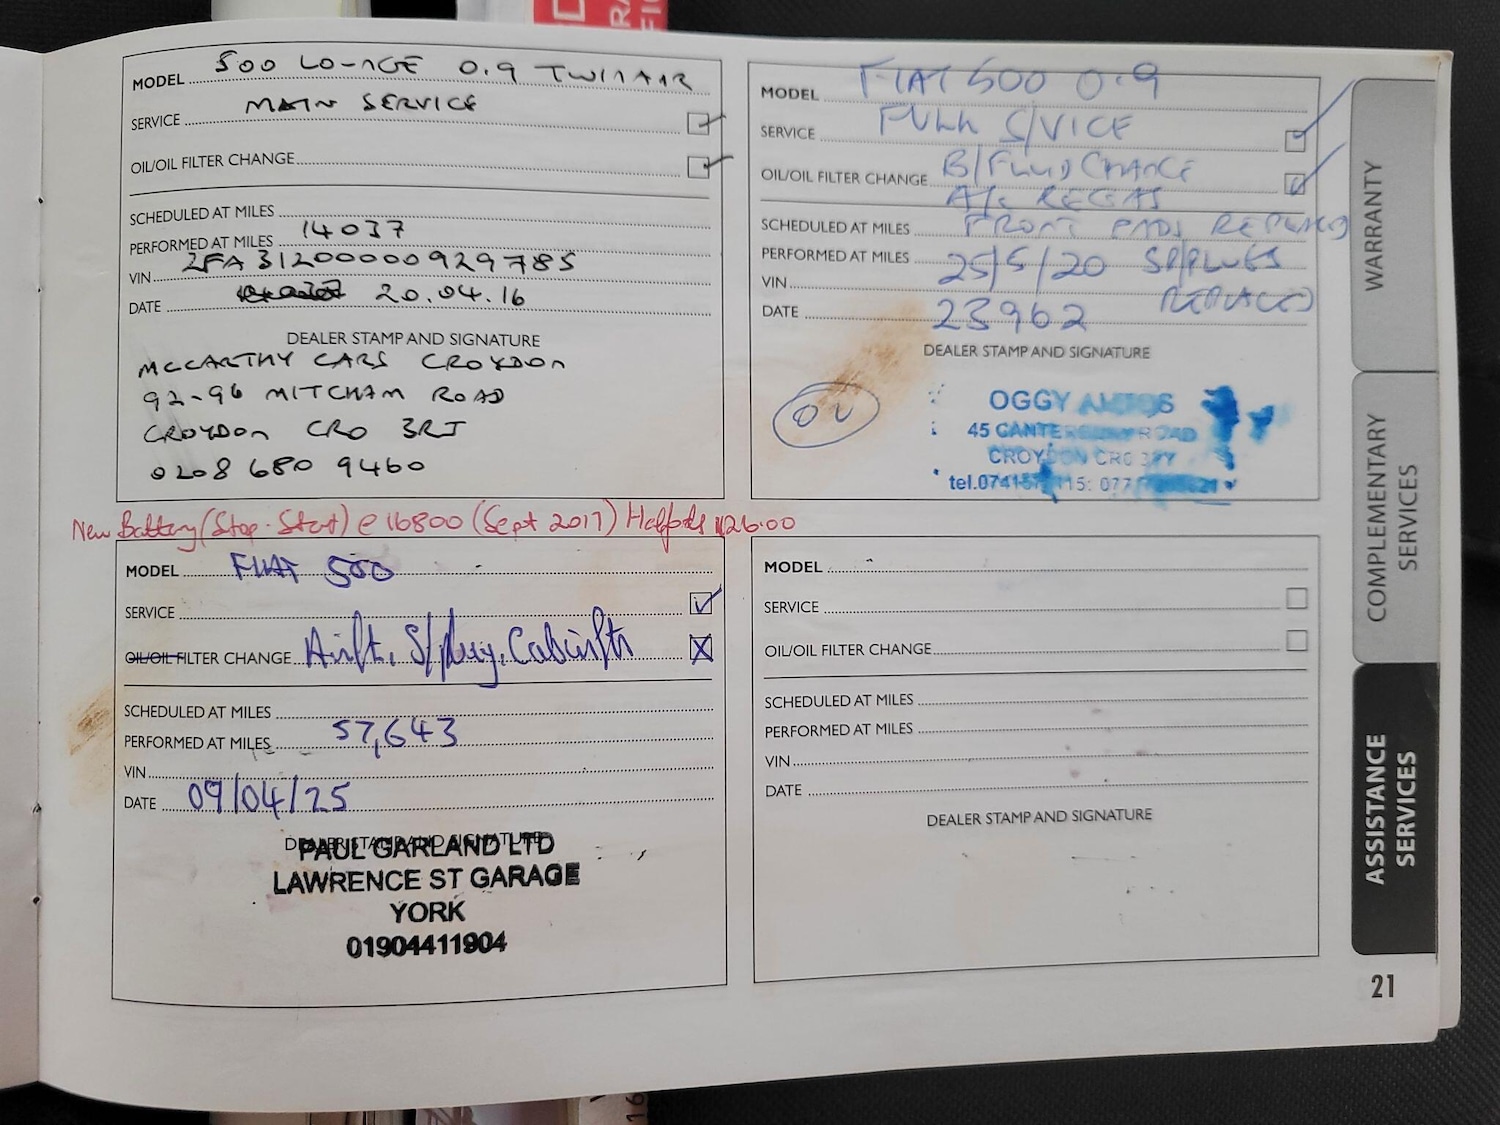 MODEL 500 LOUNGE 0.9 TWINAIR
SERVICE MAIN SERVICE
OIL/OIL FILTER CHANGE
SCHEDULED AT MILES
PERFORMED AT MILES 14037
VIN ZFA31200000929785
DATE 20.04.16
DEALER STAMP AND SIGNATURE
MCCARTHY CARS CROYDON
92-96 MITCHAM ROAD
CROYDON CR0 3RJ
0208 680 9460
MODEL FIAT 500 0.9
SERVICE FULL S/VICE
OIL/OIL FILTER CHANGE B/FLUID CHANGE
A/C REGAS
SCHEDULED AT MILES FRONT PADS REPLACED
PERFORMED AT MILES 25/5/20 SP/PLUGS
VIN REPLACED
DATE 23962
DEALER STAMP AND SIGNATURE
OGGY
45 CANTERBURY ROAD
CROYDON CR0
tel.
New Battery (Stop-Start) @ 16800 (Sept 2017) Halfords £126.00
MODEL FIAT 500
SERVICE
OIL/OIL FILTER CHANGE Airflt, S/plug, Cabinflts
SCHEDULED AT MILES
PERFORMED AT MILES 57,643
VIN
DATE 09/04/25
DEALER STAMP AND SIGNATURE
PAUL GARLAND LTD
LAWRENCE ST GARAGE
YORK
01904411904
MODEL
SERVICE
OIL/OIL FILTER CHANGE
SCHEDULED AT MILES
PERFORMED AT MILES
VIN
DATE
DEALER STAMP AND SIGNATURE
WARRANTY
COMPLEMENTARY
SERVICES
ASSISTANCE
SERVICES
21